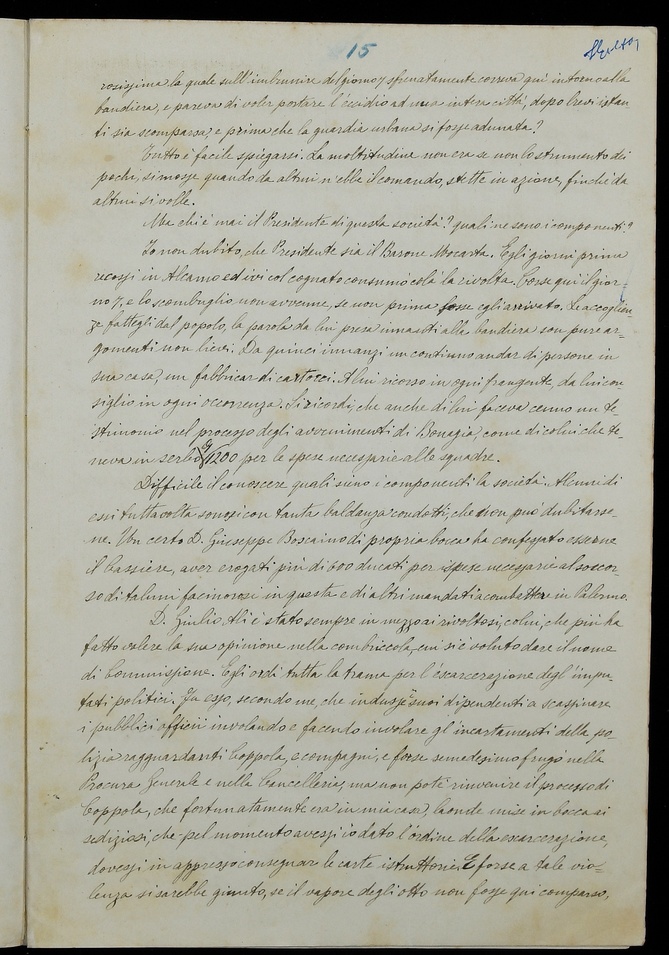 15
rosissima la quale sull'imbrunire del giorno 7 sfrenatamente correva qui intorno alla
bandiera, e pareva di voler portare l'eccidio ad una intera città, dopo brevi istan
ti sia scomparsa, e prima che la guardia urbana si fosse adunata?
Tutto è facile spiegarsi. La moltitudine non era se non lo strumento dei
pochi, si mosse quando da altrui n'ebbe il comando, stette in azione, finchè da
altrui si volle.
Ma chi è mai il Presidente di questa società? quali ne sono i componenti?
Io non dubito, che Presidente sia il Barone Mocarta. Egli giorni prima
recossi in Alcamo ed ivi col cognato consumò colà la rivolta. Corse qui il gior-
no 7, e lo scombuglio non avvenne, se non prima fosse egli arrivato. Le accoglien
ze fattegli dal popolo, la parola da lui presa innanti alla bandiera son pure ar-
gomenti non lievi. Da quinci innanzi un continuo andar di persone in
sua casa, un fabbricar di cartocci. A lui ricorso in ogni frangente, da lui con-
siglio in ogni occorrenza. Si ricordi, che anche di lui faceva cenno un te-
stimonio nel processo degli avvenimenti di Bonagia, come di colui che te-
neva in serbo 1200 per le spese necessarie alle squadre.
Difficile il conoscere quali sieno i componenti la società. Alcuni di
essi tutta volta sonosi con tanta baldanza condotti, che non può dubitarse-
ne. Un certo D. Giuseppe Boscaino di propria bocca ha confessato esserne
il Cassiere, aver erogati più di 600 ducati per ispese necessarie al soccor-
so di taluni facinorosi in questa e di altri mandati a combattere in Palermo.
D. Giulio Alì è stato sempre in mezzo ai rivoltosi; colui, che più ha
fatto valere la sua opinione nella combriccola, cui si è voluto dare il nome
di Commissione. Egli ordì tutta la trama per l'escarcerazione degl'impu-
tati politici. Fu esso, secondo me, che indusse i suoi dipendenti a scassinare
i pubblici officii involando e facendo involare gl'incartamenti della po-
lizia ragguardanti Coppola, e compagni, e forse semedesimo frugò nella
Procura Generale e nella Cancelleria, ma non potè rinvenire il processo di
Coppola, che fortunatamente era in mia casa, laonde mise in bocca ai
sediziosi, che pel momento avessi io dato l'ordine della escarcerazione,
dovessi in appresso consegnar le carte istruttorie. E forse a tale vio-
lenza si sarebbe giunto, se il vapore degli otto non fosse qui comparso,